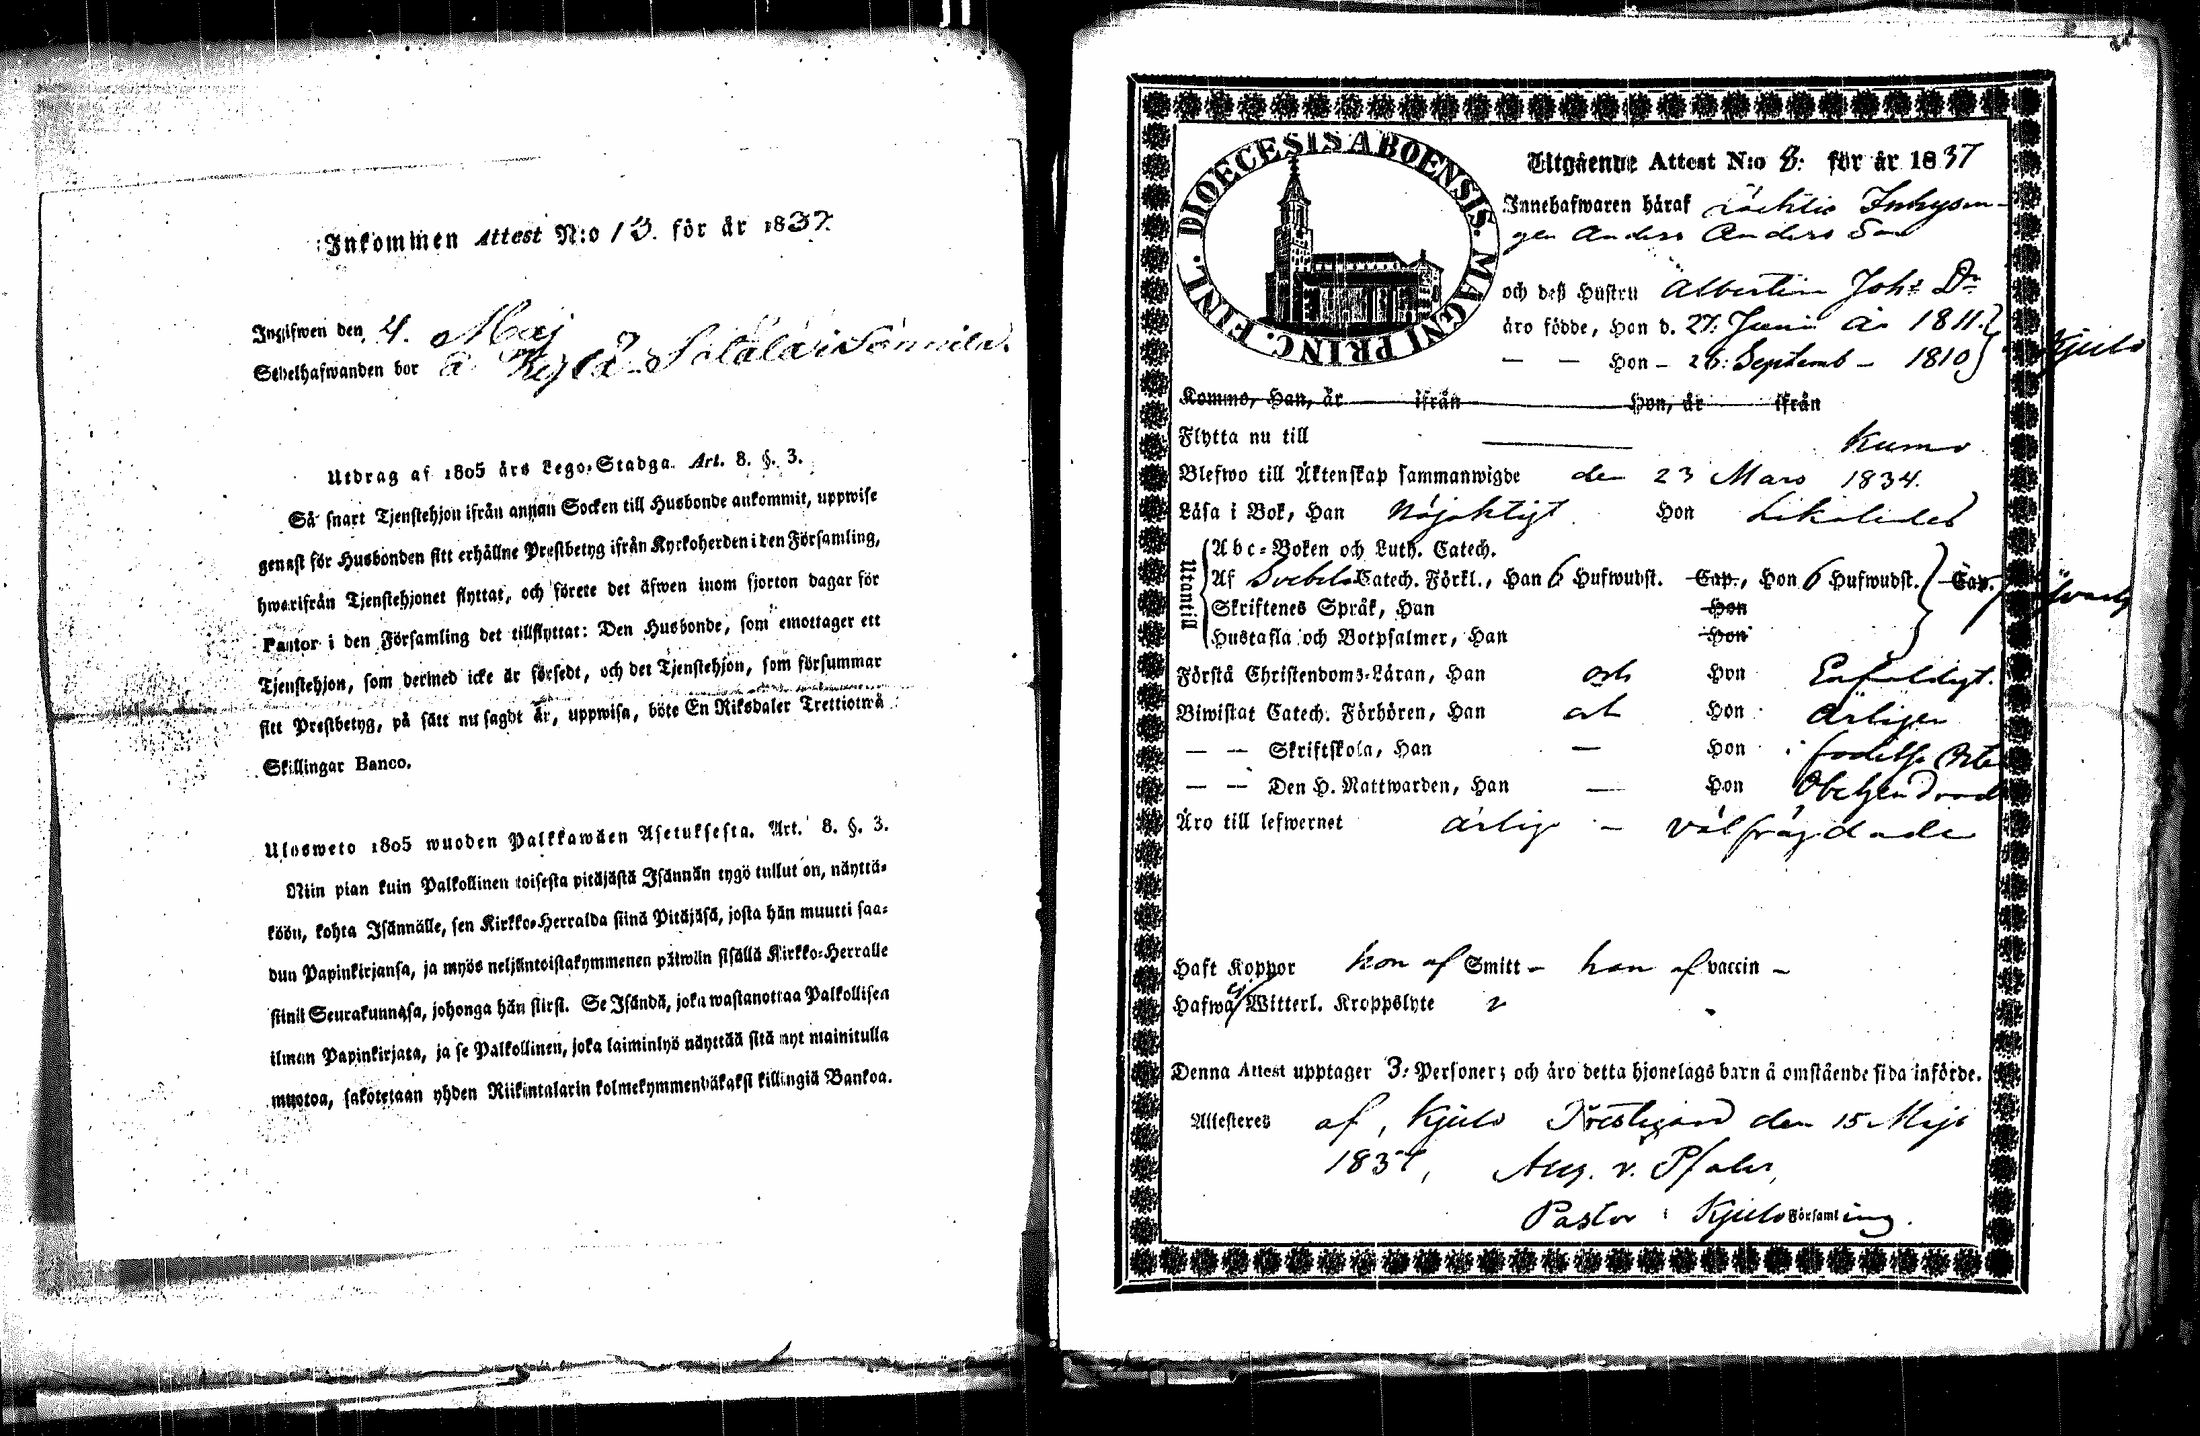 Inkommen Attest N:o 13. för år 1837.
Ingifwen den 4. Maj
Sedelhafwanden bor à
Utdrag af 1805 års Lego-Stadga. Art. 8. §. 3.
Så snart Tjenstehjon ifrån annan Socken till Husbonde ankommit, uppwise
genast för Husbonden sitt erhållne Prestbetyg ifrån Kyrkoherden i den Församling,
hwarifrån Tjenstehjonet flyttat, och förete det äfwen inom fjorton dagar för
Pastor i den Församling det tillflyttat: Den Husbonde, som emottager ett
Tjenstehjon, som dermed icke är försedt, och det Tjenstehjon, som försummar
sitt Prestbetyg, på sätt nu sagdt är, uppwisa, böte En Riksdaler Trettiotwå
Skillingar Banco.
Ulosweto 1805 wuoden Palkkawäen Asetuksesta. Art. 8. §. 3.
Niin pian kuin Palkollinen toisesta pitäjästä Isännän tygö tullut on, näyttä-
köön, kohta Isännälle, sen Kirkko-Herralda siinä Pitäjäsä, josta hän muutti saa-
dun Papinkirjansa, ja myös neljäntoistakymmenen päiwän sisällä Kirkko-Herralle
siinä Seurakunnasa, johonga hän siirsi. Se Isändä, joka wastanottaa Palkollisen
ilman Papinkirjata, ja se Palkollinen, joka laiminlyö näyttää sitä nyt mainitulla
muotoa, sakotetaan yhden Riikintalarin kolmekymmendäkaksi killingiä Bankoa.
DIOECESIS ABOENSIS. MAGNI PRINC. FINL.
Utgående Attest N:o 8: för år 1837
Innehafwaren häraf Inhysin-
gen Anders Anders Son
och deß Hustru Albertin Joh: Dr
äro födde, Han d. 27. Junii år 1811. } Kjulo
— — Hon - 26: Septemb - 1810
Komne, Han, år ifrån Hon, år ifrån
Flytta nu till Kumo
Blefwo till Äktenskap sammanwigde den 23 Mars 1834.
Läsa i Bok, Han Nöjaktigt Hon Likaledes
Utantill
Abc-Boken och Luth. Catech.
Af Svebeli Catech. Förkl., Han 6 Hufwudst. Cap., Hon 6 Hufwudst. Cap.
Skriftenes Språk, Han Hon
Hustafla och Botpsalmer, Han Hon
Förstå Christendoms-Läran, Han och Hon Enfaldigt.
Biwistat Catech. Förhören, Han och Hon årligen
— — Skriftskola, Han — Hon i födelse Orten
— — Den H. Nattwarden, Han — Hon Obehindrade
Äro till lefwernet ärlige - välfrägdade
Haft Koppor hon af Smitt - han af vaccin -
Hafwa ej Witterl. Kroppslyte
Denna Attest upptager 3: Personer; och äro detta hjonelags barn å omstående sida införde.
Attesteres af, Kjulo Prestegård den 15 Maji
1837, Aug. v. Pfaler,
Pastor i Kjulo Församling.